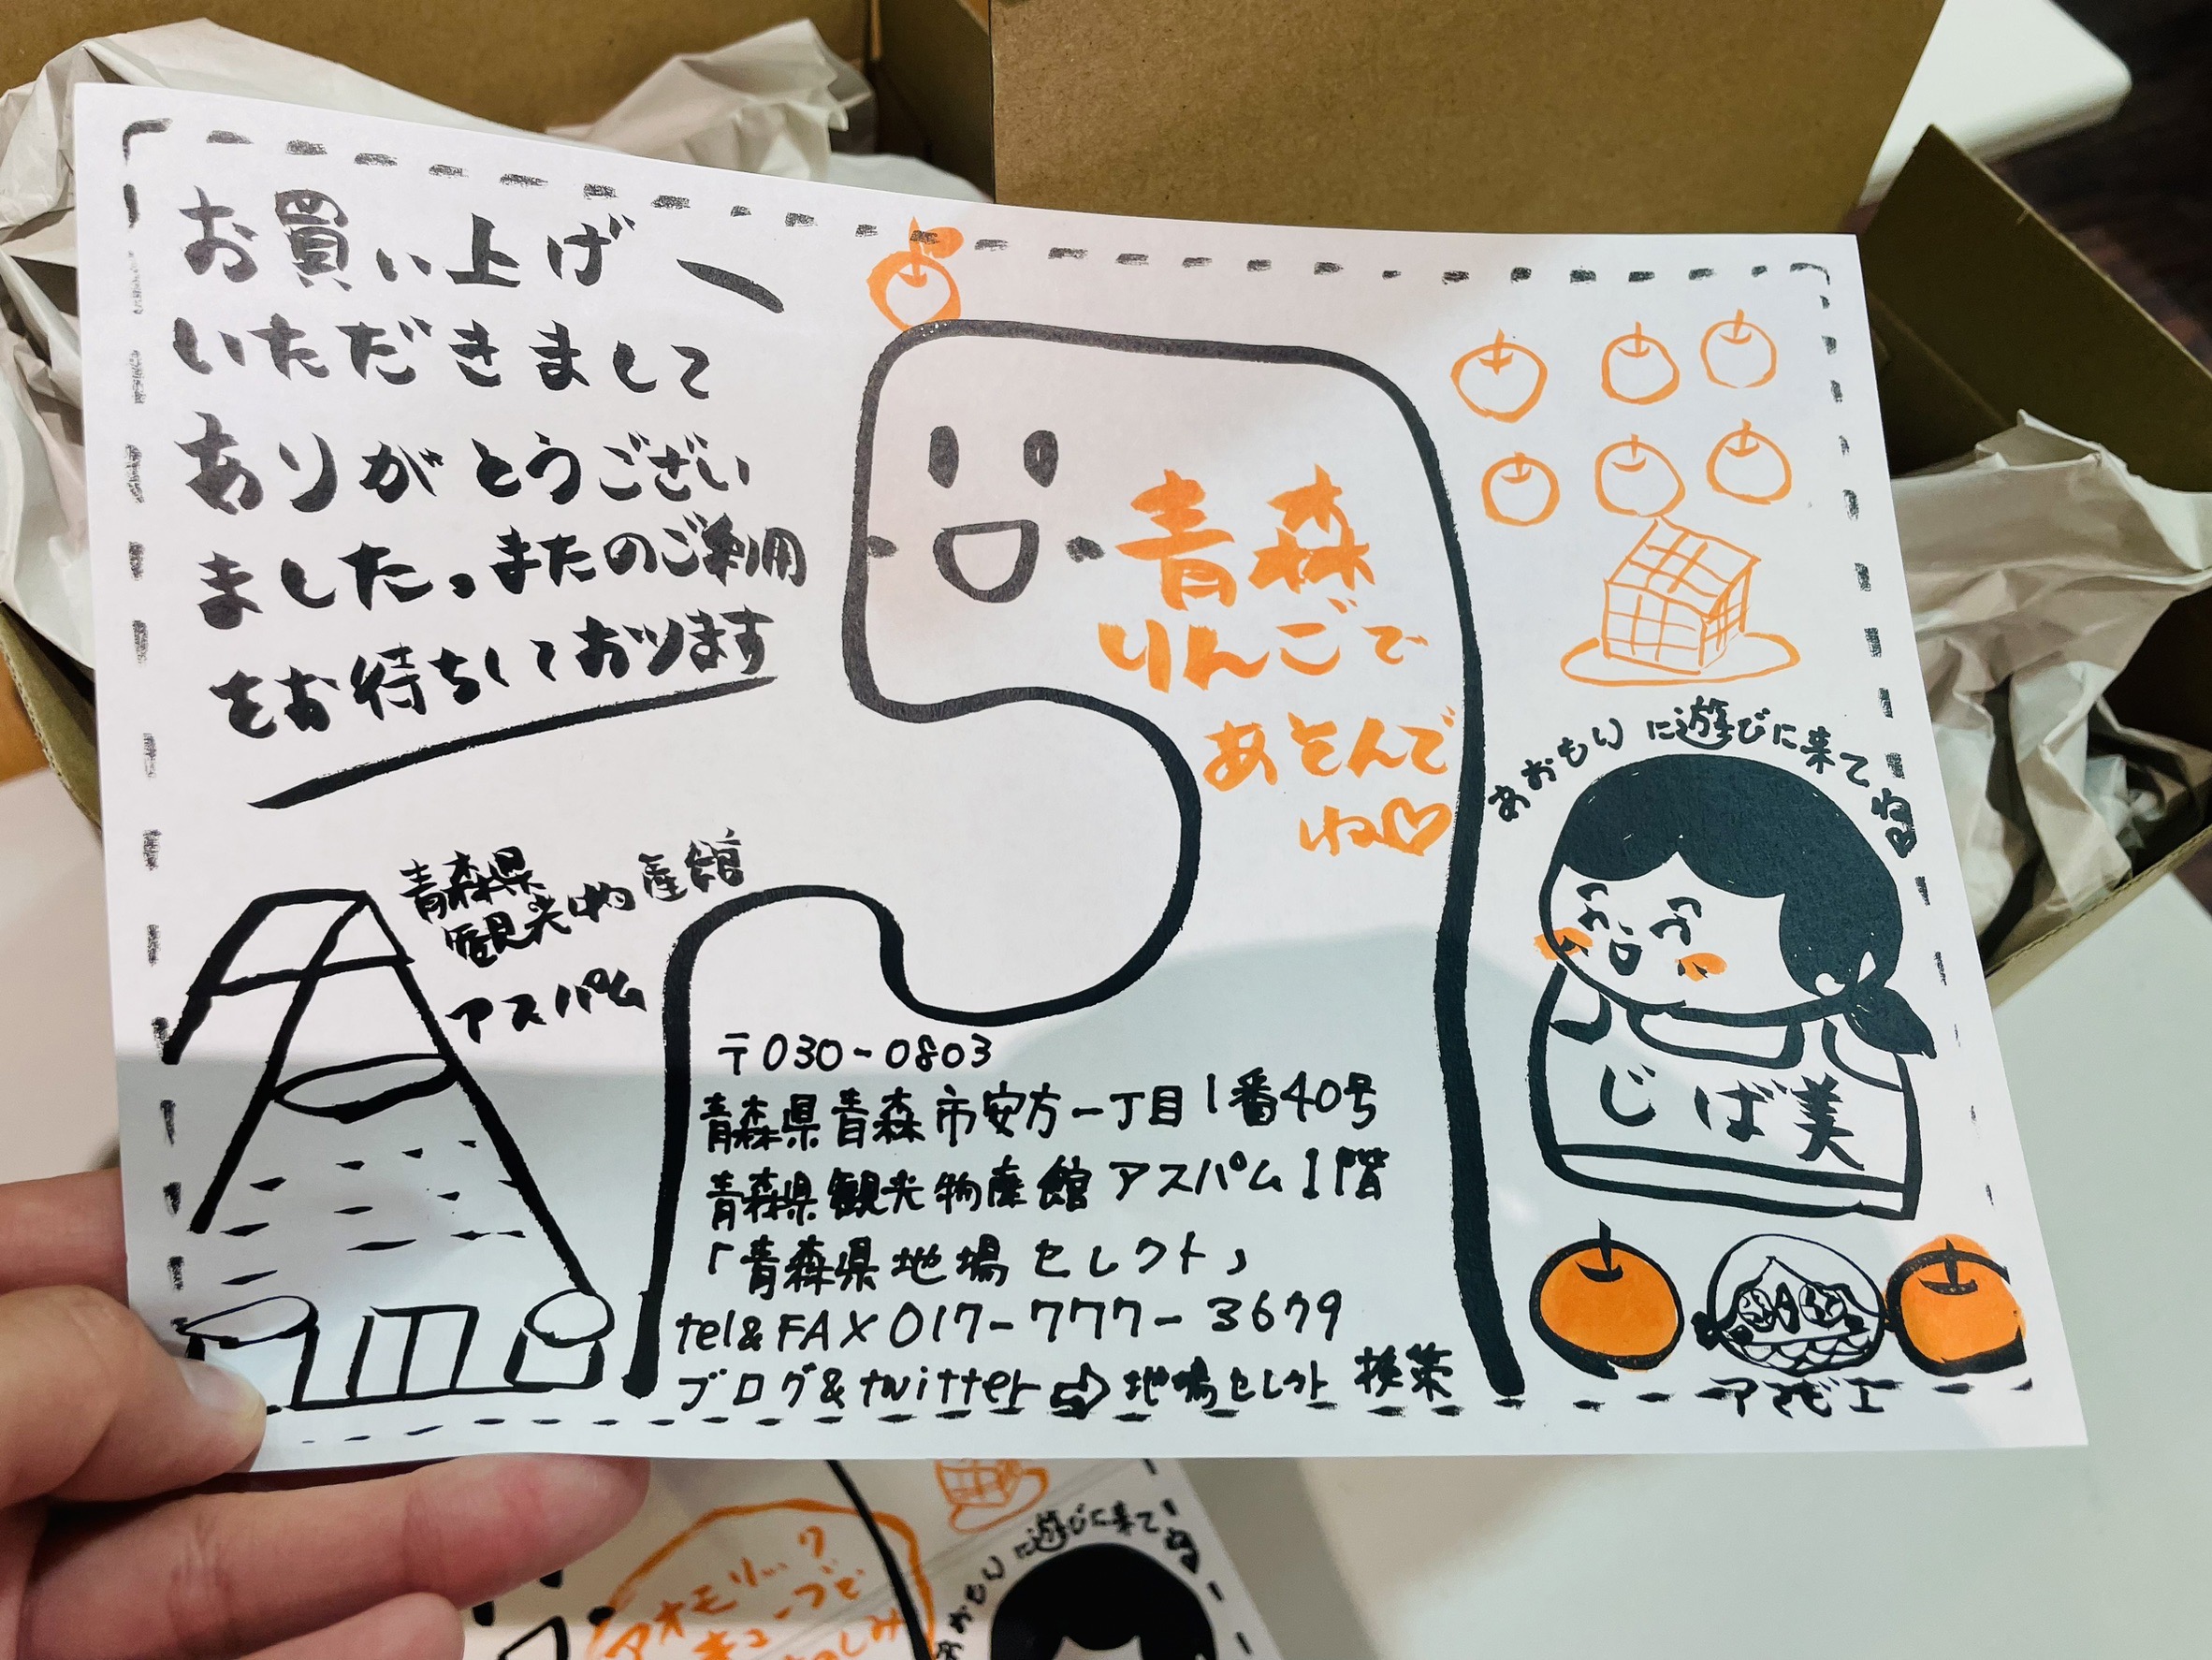 お買い上げ
いただきまして
ありがとうござい
ました。またのご利用
をお待ちしております
青森
りんごで
あそんで
ね♡
あおもりに遊びに来てね
じば美
アマビエ
青森県
観光物産館
アスパム
〒030-0803
青森県青森市安方一丁目1番40号
青森県観光物産館アスパム1階
「青森県地場セレクト」
tel&FAX 017-777-3679
ブログ&twitter⇨地場セレクト 検索
アオモリック
キューブで
たのしみ
あおもりに遊びに来てね